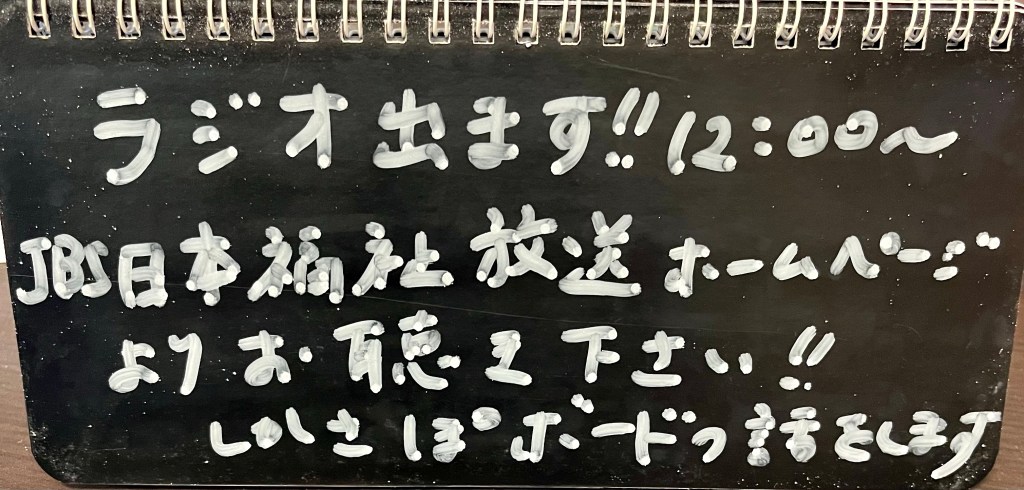 ラジオ出ます!!12:00〜
JBS日本福祉放送ホームページ
よりお聴き下さい!!
しかさぽボードの話をします